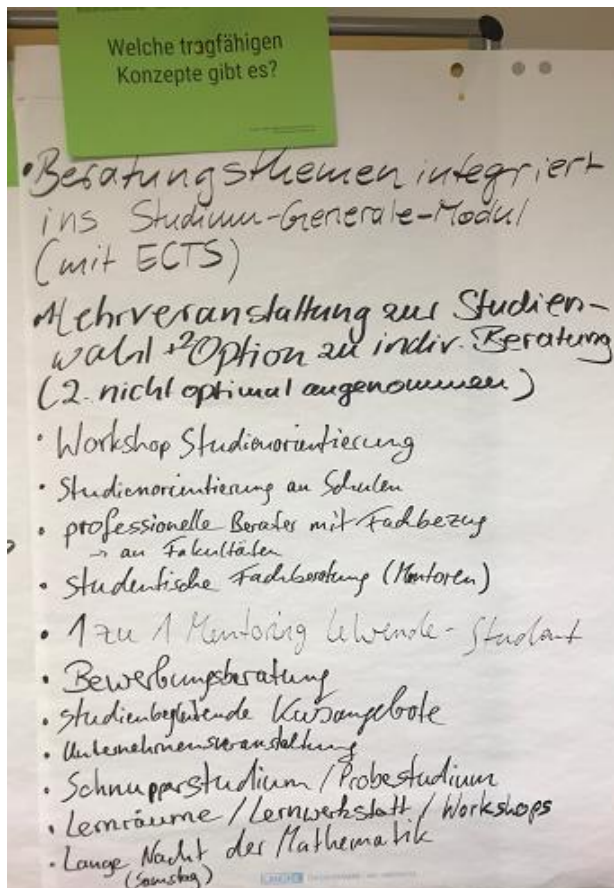 Welche tragfähigen
Konzepte gibt es?
• Beratungsthemen integriert
ins Studium-Generale-Modul
(mit ECTS)
• 1 Lehrveranstaltung zur Studien-
wahl + 2 Option zu indiv. Beratung
(2. nicht optimal angenommen)
• Workshop Studienorientierung
• Studienorientierung an Schulen
• professionelle Berater mit Fachbezug
→ an Fakultäten
• Studentische Fachberatung (Mentoren)
• 1 zu 1 Mentoring Lehrende - Student
• Bewerbungsberatung
• studienbegleitende Kursangebote
• Unternehmensveranstaltung
• Schnupperstudium / Probestudium
• Lernräume / Lernwerkstatt / Workshops
• Lange Nacht der Mathematik
(Samstag)